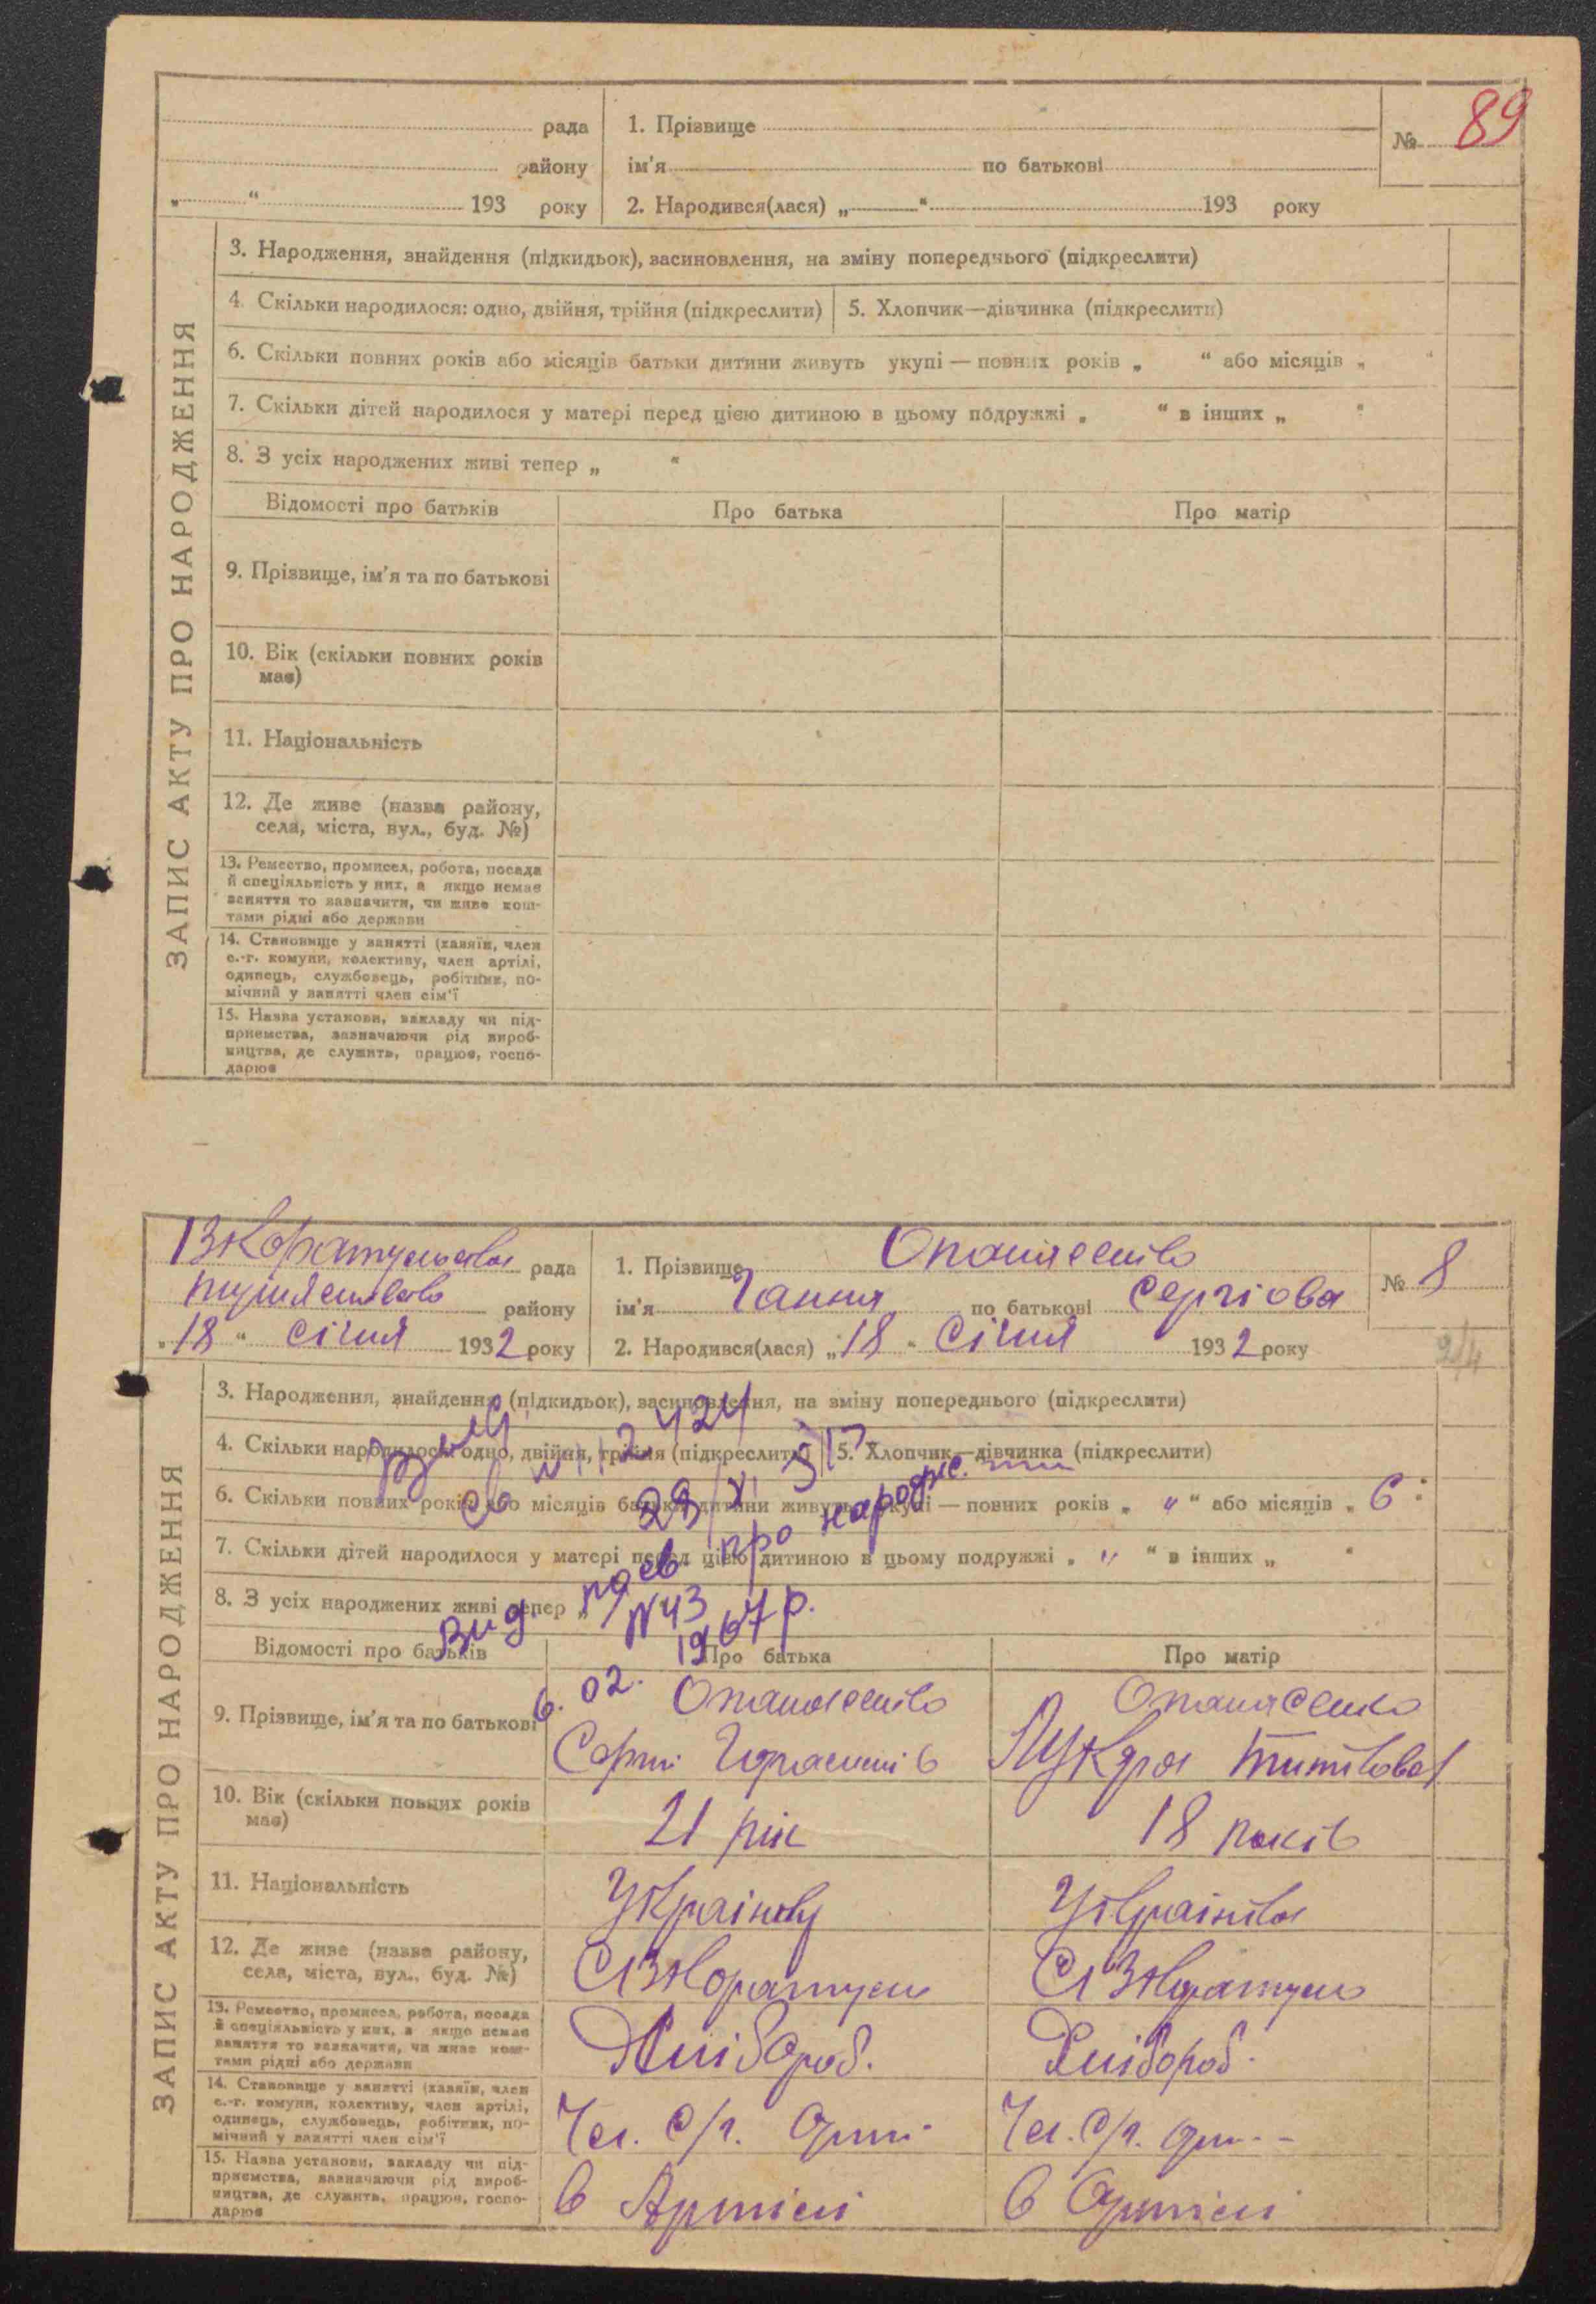 рада
району
„ “ 193 року
1. Прізвище
ім'я по батькові
2. Народився(лася) „ “ 193 року
№ 89
ЗАПИС АКТУ ПРО НАРОДЖЕННЯ
3. Народження, знайдення (підкидьок), засиновлення, на зміну попереднього (підкреслити)
4. Скільки народилося: одно, двійня, трійня (підкреслити)
5. Хлопчик—дівчинка (підкреслити)
6. Скільки повних років або місяців батьки дитини живуть укупі — повних років „ “ або місяців „ “
7. Скільки дітей народилося у матері перед цією дитиною в цьому подружжі „ “ в інших „ “
8. З усіх народжених живі тепер „ “
Відомості про батьків Про батька Про матір
9. Прізвище, ім'я та по батькові
10. Вік (скільки повних років
має)
11. Національність
12. Де живе (назва району,
села, міста, вул., буд. №)
13. Ремество, промисел, робота, посада
й спеціяльність у них, а якщо немає
заняття то зазначити, чи живе кош-
тами рідні або держави
14. Становище у занятті (хазяїн, член
с.-г. комуни, колективу, член артілі,
одинець, службовець, робітник, по-
мічний у занятті член сім'ї
15. Назва установи, закладу чи під-
приємства, зазначаючи рід вироб-
ництва, де служить, працює, госпо-
дарює
рада
району
„18“ січня 1932 року
1. Прізвище Опанасенко
ім'я Ганна по батькові Сергіова
2. Народився(лася) „18“ Січня 1932 року
№ 8
ЗАПИС АКТУ ПРО НАРОДЖЕННЯ
3. Народження, знайдення (підкидьок), засиновлення, на зміну попереднього (підкреслити)
4. Скільки народилося: одно, двійня, трійня (підкреслити)
5. Хлопчик—дівчинка (підкреслити)
6. Скільки повних років або місяців батьки дитини живуть укупі — повних років „ “ або місяців „ 6 “
7. Скільки дітей народилося у матері перед цією дитиною в цьому подружжі „ “ в інших „ “
8. З усіх народжених живі тепер „
Вид. про народж.
N 43
6. 02. 1967 р.
Відомості про батьків Про батька Про матір
9. Прізвище, ім'я та по батькові Опанасенко Опанасенко
10. Вік (скільки повних років
має) 21 рік 18 років
11. Національність Українец Українка
12. Де живе (назва району,
села, міста, вул., буд. №)
13. Ремество, промисел, робота, посада
й спеціяльність у них, а якщо немає
заняття то зазначити, чи живе кош-
тами рідні або держави Хлібороб. Хлібороб.
14. Становище у занятті (хазяїн, член
с.-г. комуни, колективу, член артілі,
одинець, службовець, робітник, по-
мічний у занятті член сім'ї Чл. с/г. Чл. с/г.
15. Назва установи, закладу чи під-
приємства, зазначаючи рід вироб-
ництва, де служить, працює, госпо-
дарює в Артілі в Артілі